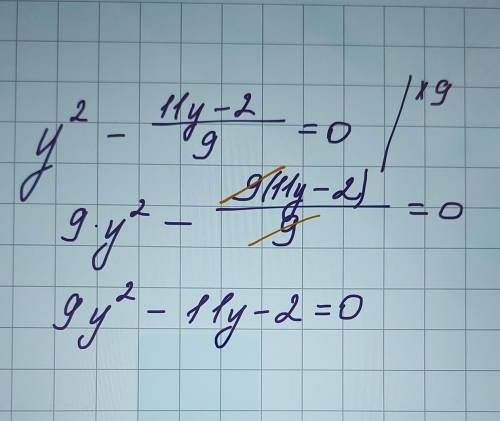 y² - (11y - 2)/9 = 0 | ×9
9·y² - 9(11y - 2)/9 = 0
9y² - 11y - 2 = 0